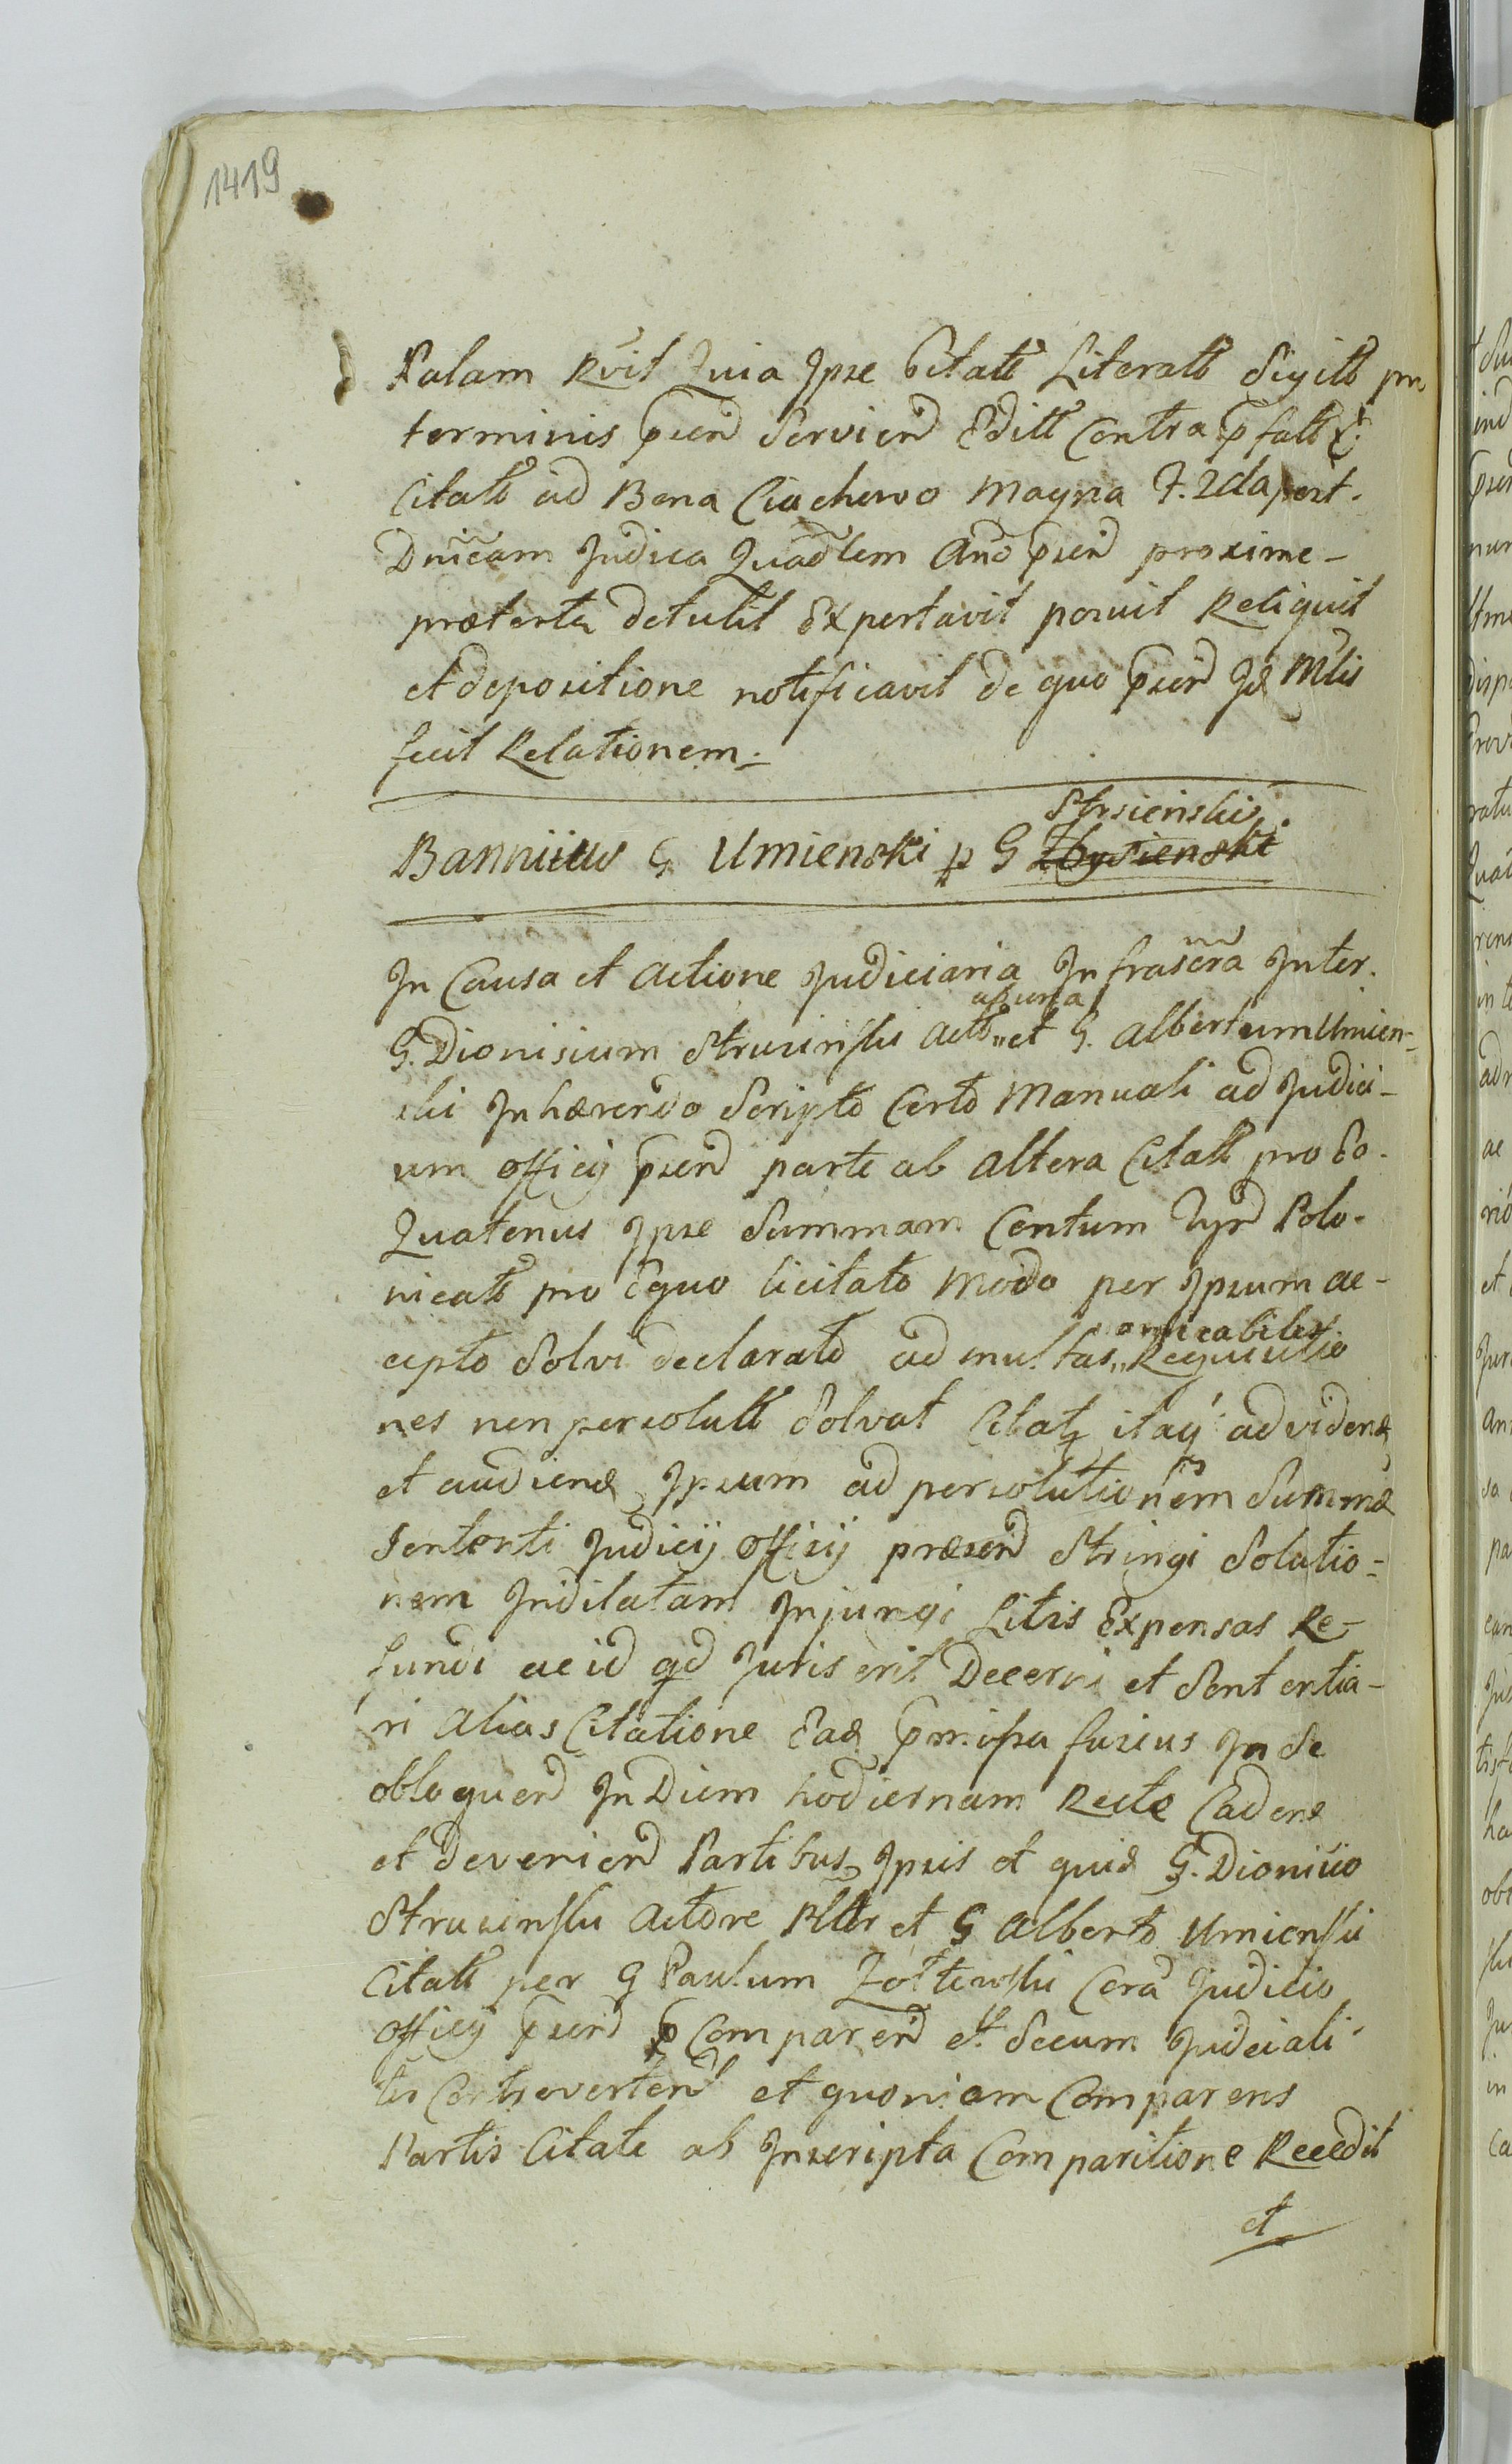 1419
Palam Rvit Quia Ipse Citatt Literatt Sigill pro
terminis pnsen Servien Editt Contra pfatt
Citatt ad Bona Ciachowo Magna F. 2da post.
Dnicam Judica Quadlem Ano psen proxime-
præterita detulit Exportavit posuit Reliquit
et depositione notificavit de quo psen Id Mtlis
fecit Relationem.
Strsienski
Banniiw G Umienski p G Zbysienski
In Causa et Actione Judiciaria Infrascra Inter.
ab una
G. Dionisium Strusinski Actt et G. Albertum Umien-
ski Inhærendo Scripto Certo Manuali ad Judici-
um Officij psen parte ab altera Citatt pro eo.
Quatenus Ipse Summam Centum Tynf Polo-
nicatt pro Equo licitato modo per Ipsum ac-
amicabiles
cepto Solvi declarato ad multas Requisitio
nes non persolutt Solvat Citatq itaq ad viden
et audien Ipsum ad persolutionem Summæ
Sententi Judicij Officij præsen Stringi Solutio-
nem Indilatam Injungi Litis Expensas Re-
fundi ac id qd Juris erit Decerni et Sententia-
ri alias Citatione Ead pmissa fusius In Se
obloquen In Diem hodiernam Recte Caden
et devenien Partibus Ipsis et quid G. Dionisio
Strusinski Actore Pltr et G Alberto Umienski
Citatt per G Paulum Zołtowski Cora Judicio
Officij psen Comparen et Secum Judiciali-
ter Controverten et quoniam Comparens
Partis Citate ab Inscripta Comparitione Recedit
et